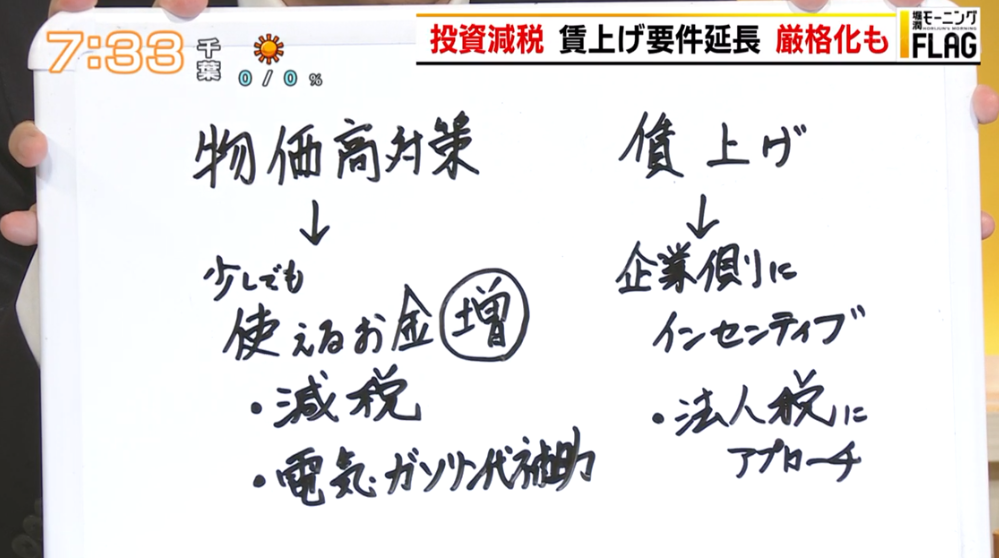 7:33
千葉
0/0%
投資減税 賃上げ要件延長 厳格化も
堀潤モーニング
HORIJUN'S MORNING
FLAG
物価高対策
↓
少しでも
使えるお金増
・減税
・電気・ガソリン代補助
賃上げ
↓
企業側に
インセンティブ
・法人税に
アプローチ